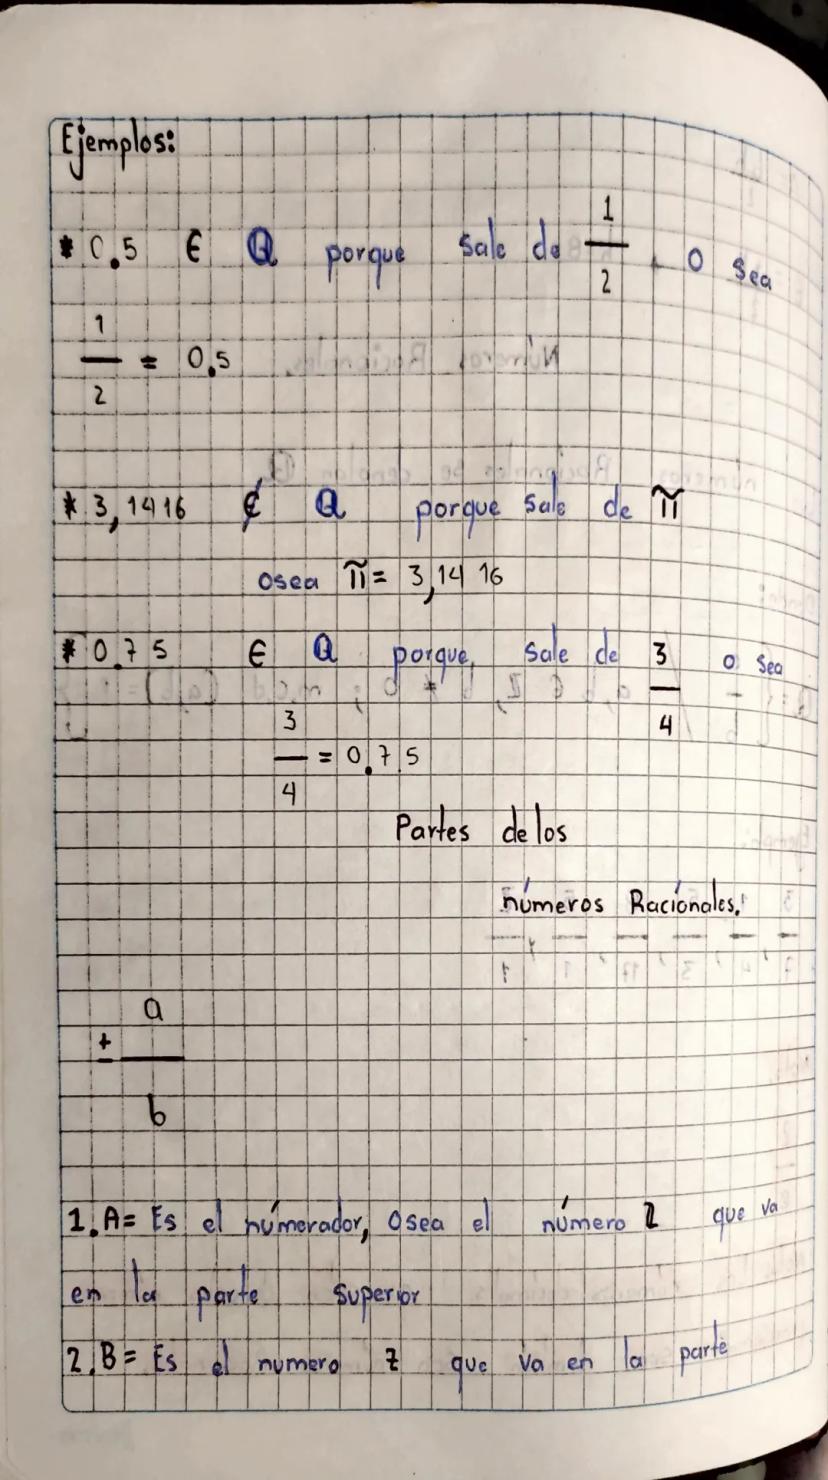 Ejemplos:
* 0.5 ∈ ℚ porque sale de 1/2 . o sea
1/2 = 0,5
* 3,1416 ∉ ℚ porque sale de π
osea π = 3,1416
* 0.75 ∈ ℚ porque, sale de 3/4 o sea
3/4 = 0,75
Partes de los
números Racionales.
± a/b
1. A= Es el númerador, osea el número Z que va
en la parte superior
2. B= Es el numero Z que va en la parte